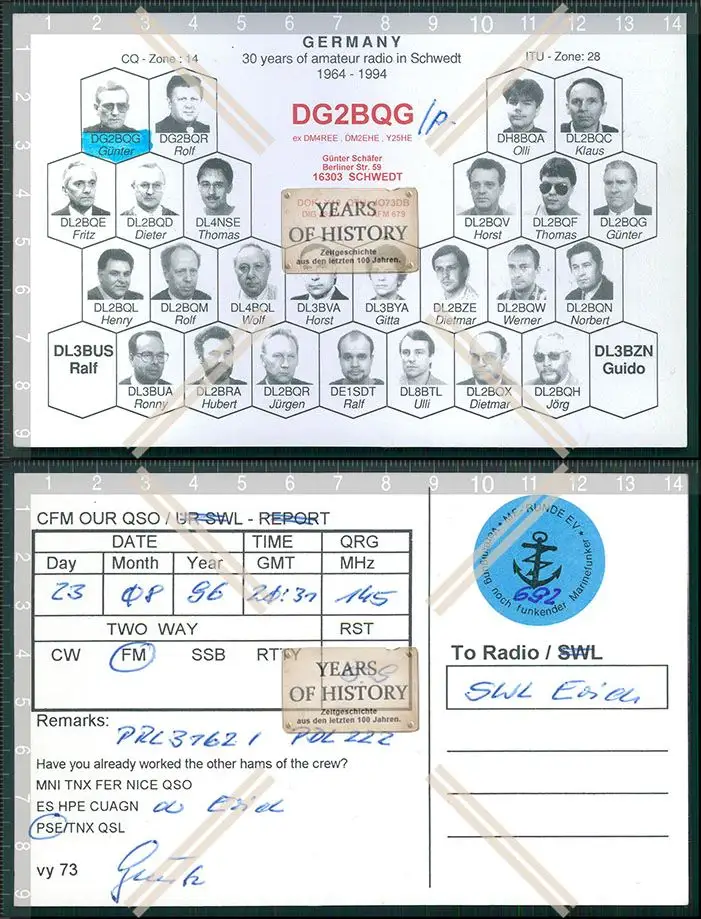 1 2 3 4 5 6 7 8 9 10 11 12 13 14
GERMANY
CQ - Zone : 14
30 years of amateur radio in Schwedt
ITU - Zone: 28
1964 - 1994
DG2BQG /p.
ex DM4REE , DM2EHE , Y25HE
Günter Schäfer
Berliner Str. 59
16303 SCHWEDT
YEARS
OF HISTORY
Zeitgeschichte
aus den letzten 100 Jahren.
DG2BQG
Günter
DG2BQR
Rolf
DH8BQA
Olli
DL2BQC
Klaus
DL2BQE
Fritz
DL2BQD
Dieter
DL4NSE
Thomas
DL2BQV
Horst
DL2BQF
Thomas
DL2BQG
Günter
DL2BQL
Henry
DL2BQM
Rolf
DL4BQL
Wolf
DL3BVA
Horst
DL3BYA
Gitta
DL2BZE
Dietmar
DL2BQW
Werner
DL2BQN
Norbert
DL3BUS
Ralf
DL3BUA
Ronny
DL2BRA
Hubert
DL2BQR
Jürgen
DE1SDT
Ralf
DL8BTL
Ulli
DL2BQX
Dietmar
DL2BQH
Jörg
DL3BZN
Guido
1 2 3 4 5 6 7 8 9 10 11 12 13 14
CFM OUR QSO / UR SWL - REPORT
DATE TIME QRG
Day Month Year GMT MHz
23 08 96 145
TWO WAY RST
CW FM SSB RTTY
YEARS
OF HISTORY
Zeitgeschichte
aus den letzten 100 Jahren.
Remarks:
Have you already worked the other hams of the crew?
MNI TNX FER NICE QSO
ES HPE CUAGN dr Erich
PSE/TNX QSL
vy 73
MF-RUNDE EV
Vereinigung noch funkender Marinefunker
692
To Radio / SWL
SWL Erich